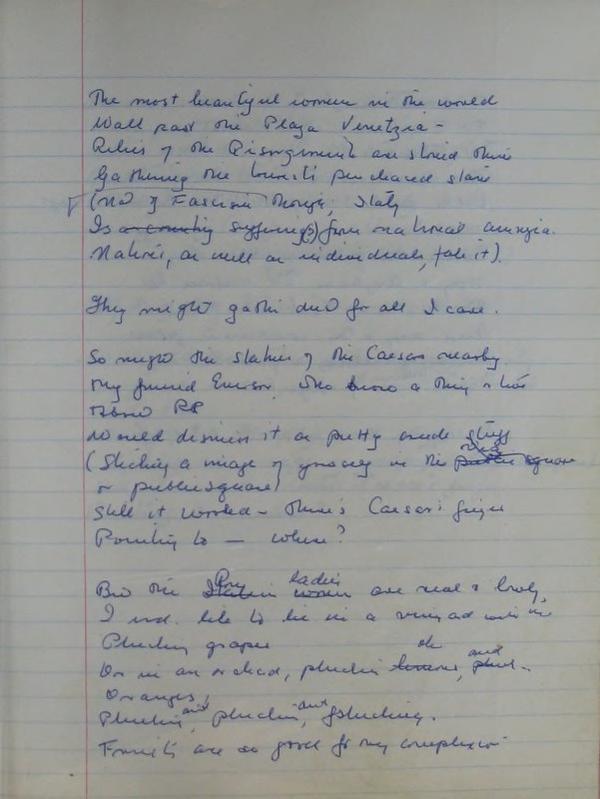 The most beautiful women in the world
Walk past the Plaza Venetzia -
Relics of the Risorgimento are stored there
Gathering the tourist purchased stare
(Not of Fascism though; Italy
Is a country suffering(s) from national amnesia.
Nations, as well as individuals, fake it).
They might gather dust for all I care.
So might the statues of the Caesars nearby.
My friend Emerson, who knows a thing or two
About PR
Would dismiss it as pretty crude stuff
(Sticking a image of in the public square
or public square)
Still it worked - there's Caesar's finger
Pointing to - where?
But the Italian women Roy ladies are real & lovely,
I wd. like to be in a vineyard with one
Plucking grapes
Or in an orchard, plucking lemons, and
Oranges,
Plucking, and plucking, and plucking.
Fruits are so good for my complexion